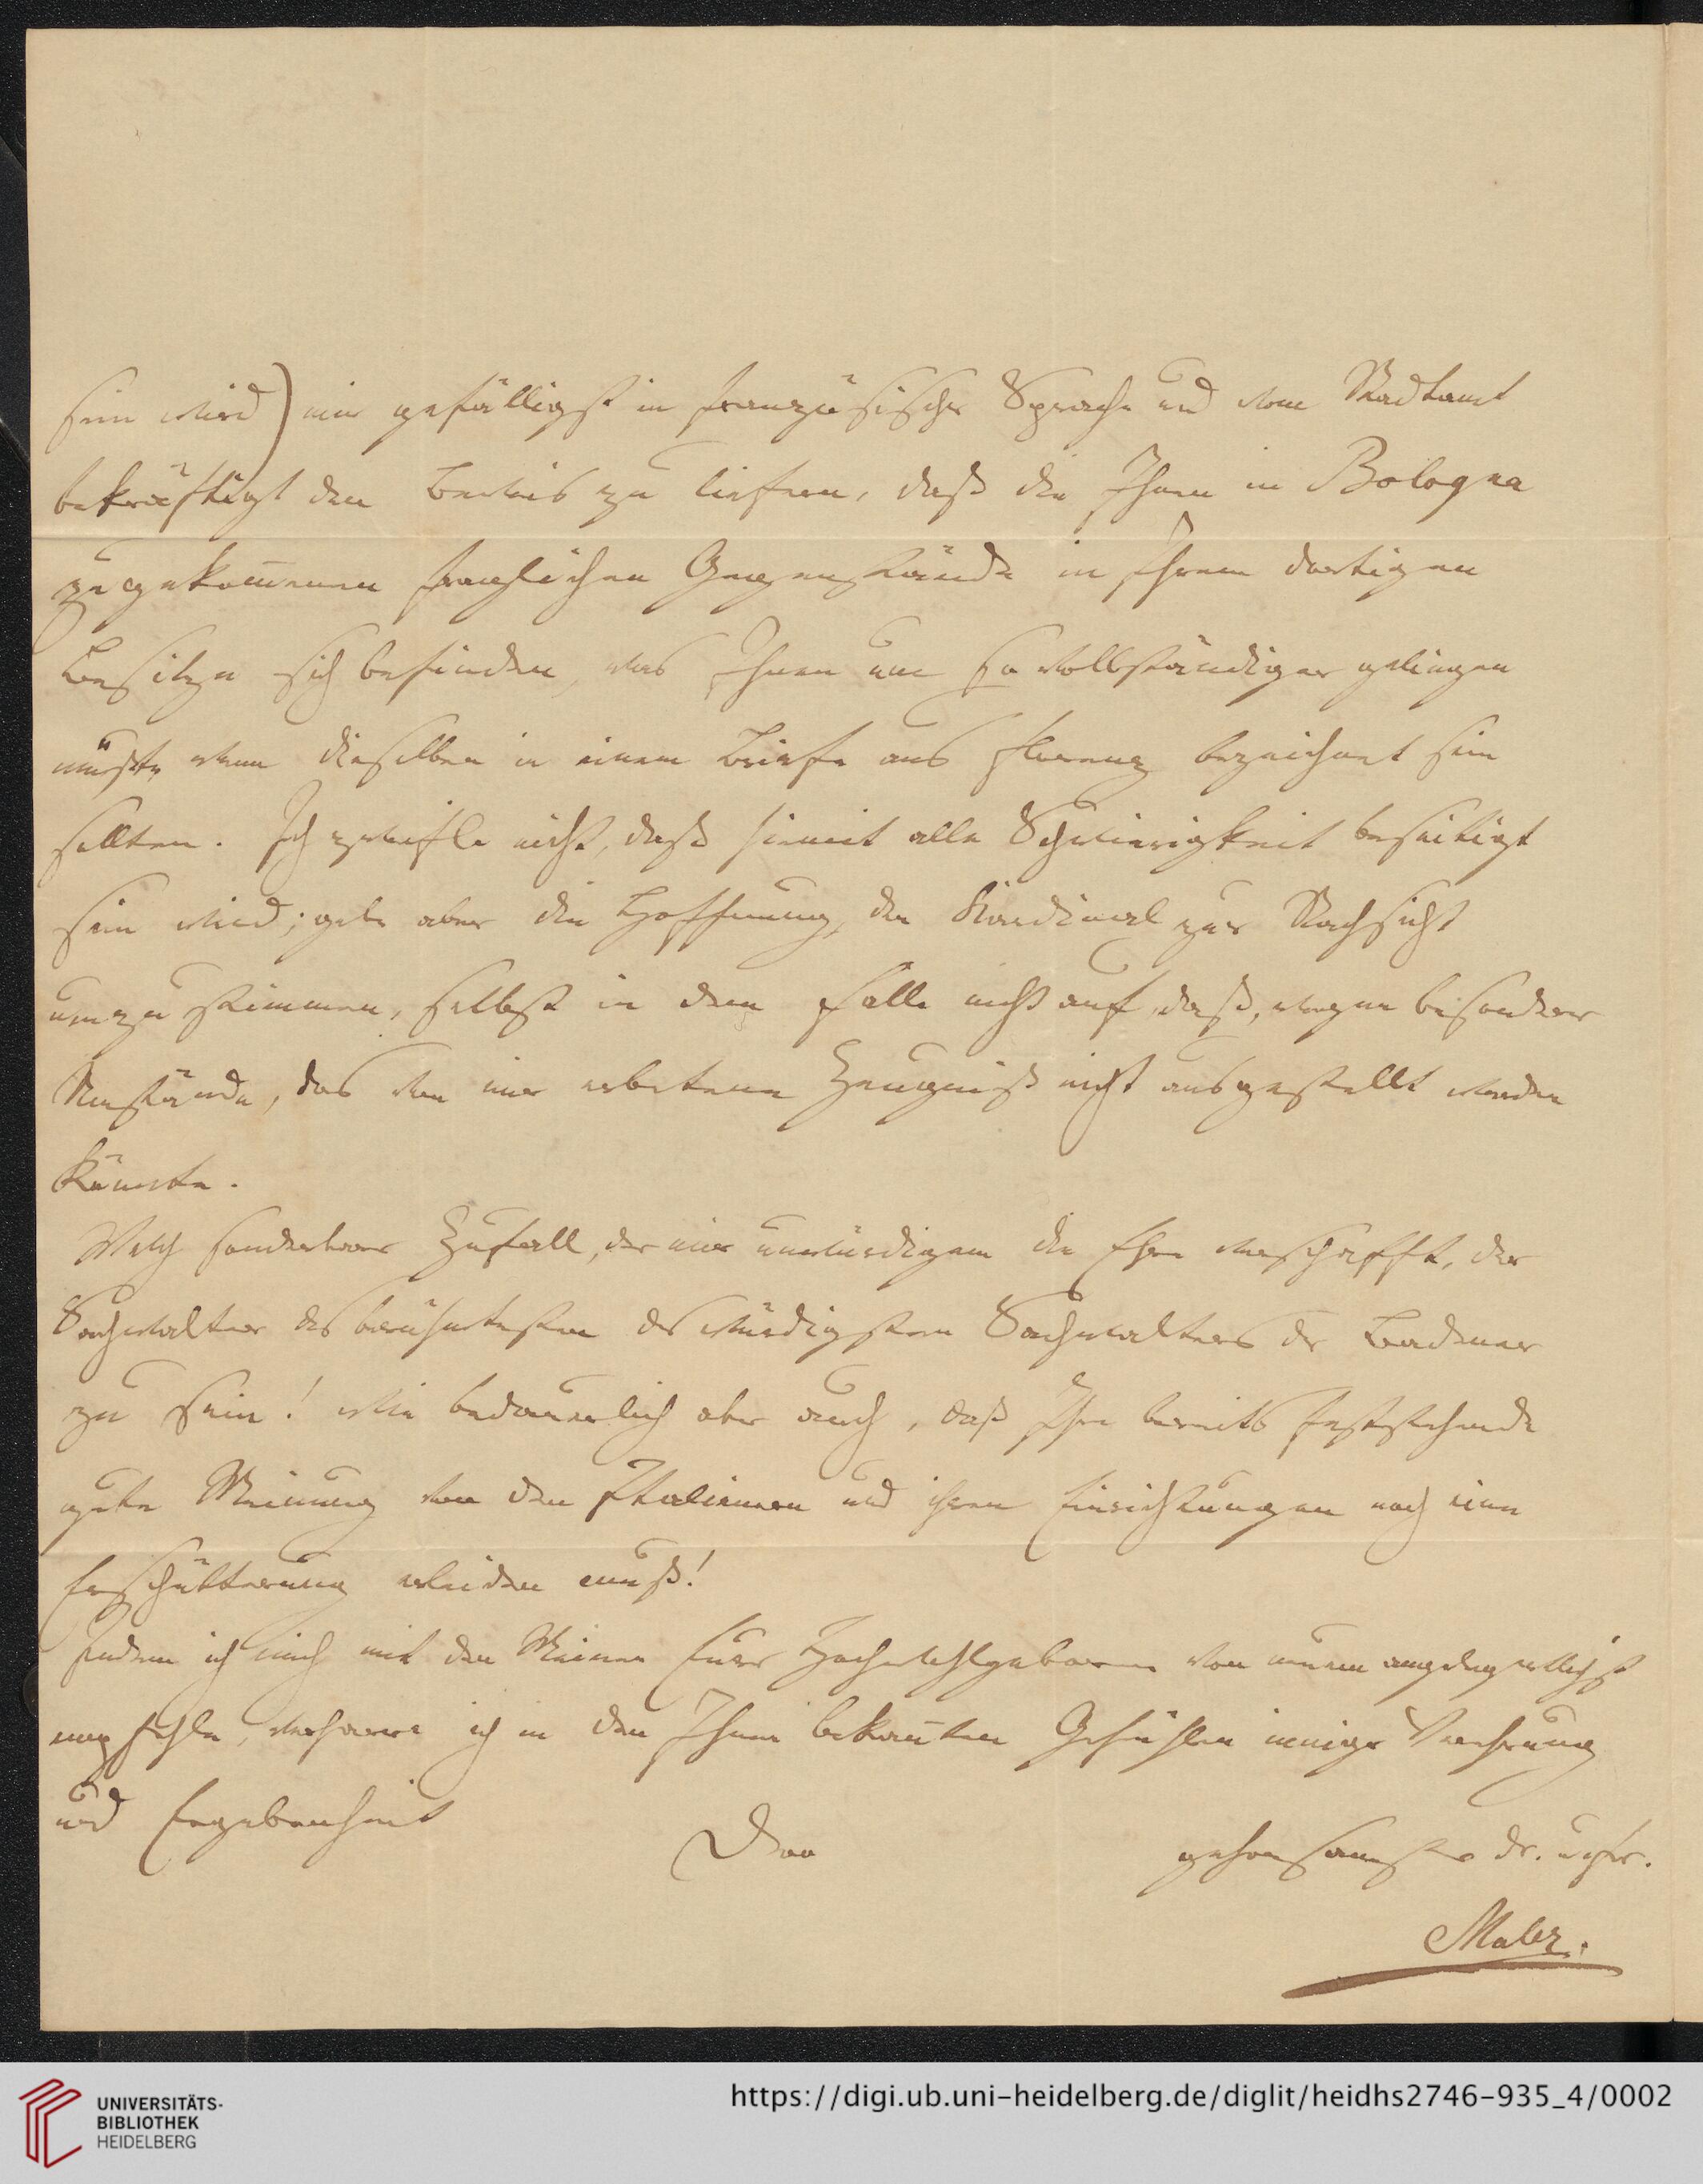 sein wird) mir gefälligst in französischer Sprache und vom Stadtamt
bekräftigt den Beweis zu liefern, daß die Ihnen in Bologna
zugekom̅enen fraglichen Gegenstände in Ihrem dortigen
Besitze sich befinden, was Ihnen um so vollständiger gelingen
müßte wenn dieselben in einem Briefe aus Florenz bezeichnet sein
sollten. Ich zweifle nicht, daß hiemit alle Schwierigkeit beseitigt
sein wird; gebe aber die Hoffnung, den Kardinal zur Nachsicht
umzustimmen, selbst in dem Falle nicht auf, daß, wegen besonderer
Umstände, das von mir erbetene Zeugniß nicht ausgestellt werden
könnte.
Welch sonderbarer Zufall, der mir unwürdigem die Ehre verschafft, der
Sachwalter des berühmtesten des würdigsten Sachwalters der Badener
zu sein! Wie bedauerlich aber auch, daß Ihre bereits feststehende
gute Meinung von den Italienern und ihren Einrichtungen noch eine
Erschütterung erleiden muß!
Indem ich mich mit den Meinen Euer Hochwohlgeboren von neuem angelegentlichst
empfehle, verharre ich in den Ihnen bekan̅ten Gefühlen inniger Verehrung
und Ergebenheit
Dero gehorsamster dr.
Maler.
UNIVERSITÄTS-
BIBLIOTHEK
HEIDELBERG
https://digi.ub.uni-heidelberg.de/diglit/heidhs2746-935_4/0002